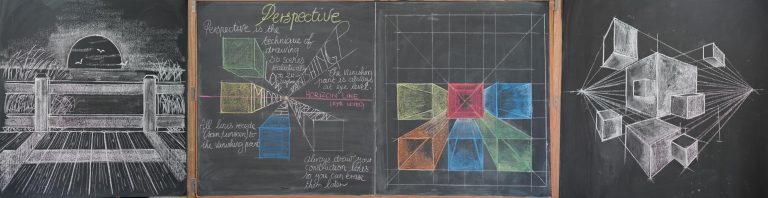 Perspective
Perspective is the
technique of
drawing
3D scenes
realistically
on 2D
The Vanishing
point is always
at eye level.
HORIZON LINE
(EYE LEVEL)
All lines recede
to the
the vanishing point
Always draw your
construction lines
so you can erase
them later